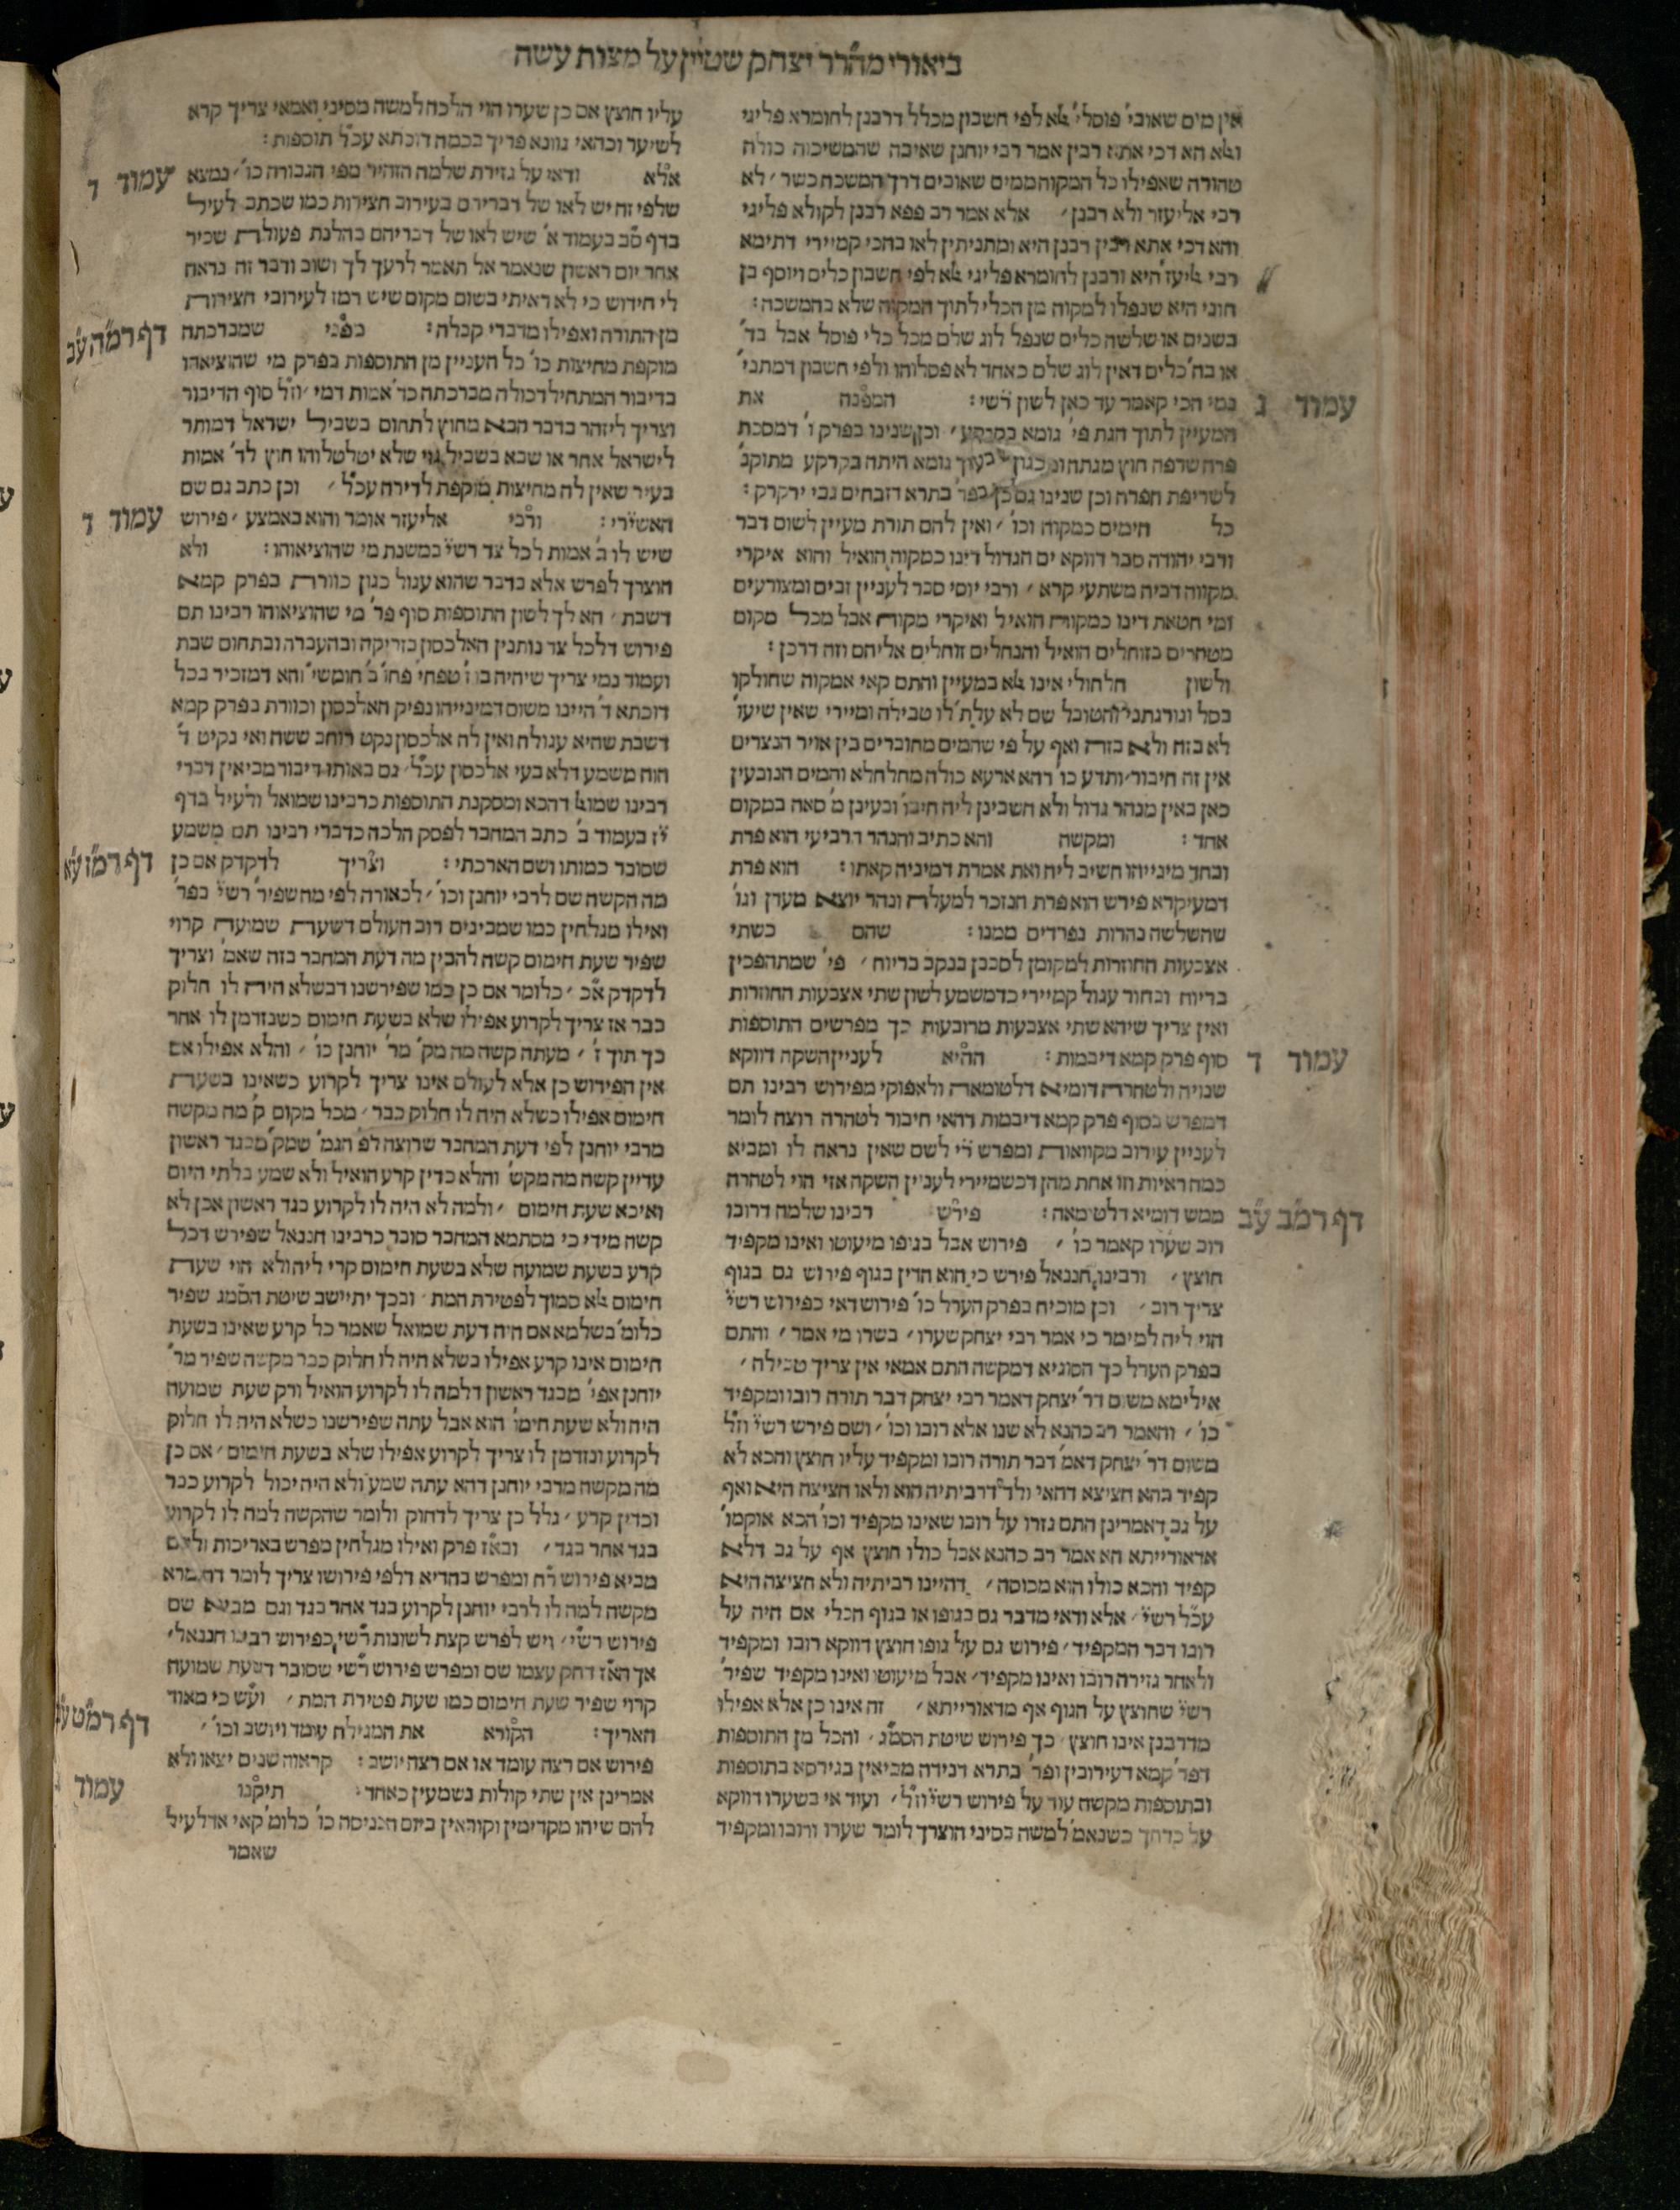 ביאורי מהרר יצחק שטיין על מצות עשה
אין מים שאובי' פוסלי' אלא לפי חשבון מכלל דרבנן לחומרא פליגי
ולא הא דכי אתא רבין אמר רבי יוחנן שאיבה שהמשיכוה כולה
טהורה שאפילו כל המקוה ממים שאובים דרך המשכה כשר ׳ לא
רבי אליעזר ולא רבנן ׳ אלא אמר רב פפא רבנן לקולא פליגי
והא דכי אתא רבין רבנן היא ומתניתין לאו בהכי קמיירי דתימא
רבי אליעז' היא ורבנן לחומרא פליגי אלא לפי חשבון כלים ויוסף בן
חוני היא שנפלו למקוה מן הכלי לתוך המקוה שלא בהמשכה :
בשנים או שלשה כלים שנפל לוג שלם מכל כלי פוסל אבל בד'
או בה' כלים דאין לוג שלם כאחד לא פסלוהו ולפי חשבון דמתני'
נמי הכי קאמר עד כאן לשון רש״י : המפנה את
המעיין לתוך הגת פי' גומא בקרקע ׳ וכן שנינו בפרק ו' דמסכת
פרה שרפה חוץ מגתה וכגון בעוך גומא היתה בקרקע מתוקנ'
לשריפת הפרה וכן שנינו גם כן בפר' בתרא דזבחים גבי ירקרק :
כל הימים כמקוה וכו' ׳ ואין להם תורת מעיין לשום דבר
ורבי יהודה סבר דווקא ים הגדול דינו כמקוה הואיל והוא איקרי
מקווה דביה משתעי קרא ׳ ורבי יוסי סבר לעניין זבים ומצורעים
ומי חטאת דינו כמקוה הואיל ואיקרי מקוה אבל מכל מקום
מטהרים בזוחלים הואיל והנחלים זוחלים אליהם וזה דרכן :
ולשון חלחולי אינו אלא במעיין והתם קאי אמקוה שחולקו
בסל וגורגתני והטובל שם לא עלת' לו טבילה ומיירי שאין שיעו'
לא בזה ולא בזה ואף על פי שהמים מחוברים בין אויר הנצרים
אין זה חיבור ׳ ותדע כו' דהא ארעא כולה מחלחלא והמים הנובעין
כאן באין מנהר גדול ולא חשבינן ליה חיבו' ובעינן מ' סאה במקום
אחד : ומקשה והא כתיב והנהר הרביעי הוא פרת
ובחד מינייהו חשיב ליה ואת אמרת דמיניה קאתו : הוא פרת
דמעיקרא פירש הוא פרת הנזכר למעלה ונהר יוצא מעדן וגו'
שהשלשה נהרות נפרדים ממנו : שהם כשתי
אצבעות החוזרות למקומן לסבבן בנקב בריוח ׳ פי' שמתהפכין
בריוח ובחור עגול קמיירי כדמשמע לשון שתי אצבעות החוזרות
ואין צריך שיהא שתי אצבעות מרובעות כך מפרשים התוספות
סוף פרק קמא דיבמות : ההיא לעניין השקה דווקא
שנויה ולטהרה דומיא דלטומאה ולאפוקי מפירוש רבינו תם
דמפרש בסוף פרק קמא דיבמות דהאי חיבור לטהרה רוצה לומר
לעניין עירוב מקוואות ומפרש ר״י לשם שאין נראה לו ומביא
כמה ראיות וזו אחת מהן דכשמיירי לעניין השקה אזי הוי לטהרה
ממש דומיא דלטומאה : פירש רבינו שלמה דרובו
רוב שערו קאמר כו' ׳ פירוש אבל בגופו מיעוטו ואינו מקפיד
חוצץ ׳ ורבינו חננאל פירש כי הוא הדין בגוף פירוש גם בגוף
צריך רוב ׳ וכן מוכיח בפרק הערל כו' פירוש דאי כפירוש רש״י
הוי ליה למימר כי אמר רבי יצחק שערו ׳ בשרו מי אמר ׳ והתם
בפרק הערל כך הסוגיא דמקשה התם אמאי אין צריך טבילה ׳
אילימא משום דר' יצחק דאמר רבי יצחק דבר תורה רובו ומקפיד
כו' ׳ והאמר רב כהנא לא שנו אלא רובו וכו' ׳ ושם פירש רש״י וז״ל
משום דר' יצחק דאמ' דבר תורה רובו ומקפיד עליו חוצץ והכא לא
קפיד בהא חציצא דהאי ולד דרביתיה הוא ולאו חציצה היא ואף
על גב דאמרינן התם גזרו על רובו שאינו מקפיד וכו' הכא אוקמו'
אדאורייתא הא אמר רב כהנא אבל כולו חוצץ אף על גב דלא
קפיד והכא כולו הוא מכוסה ׳ דהיינו רביתיה ולא חציצה היא
עכ״ל רש״י ׳ אלא ודאי מדבר גם בגופו או בגוף הכלי אם היה על
רובו דבר המקפיד ׳ פירוש גם על גופו חוצץ דווקא רובו ומקפיד
ולאחר גזירה רובו ואינו מקפיד ׳ אבל מיעוטו ואינו מקפיד שפיר'
רש״י שחוצץ על הגוף אף מדאורייתא ׳ זה אינו כן אלא אפילו
מדרבנן אינו חוצץ ׳ כך פירוש שיטת הסמ״ג ׳ והכל מן התוספות
דפר' קמא דעירובין ופר' בתרא דנידה מביאין בגירסא בתוספות
ובתוספות מקשה עוד על פירוש רש״י וז״ל ׳ ועוד אי בשערו דווקא
על כרחך כשנאמ' למשה בסיני הוצרך לומר שערו ורובו ומקפיד
עמוד ג
עמוד ד
דף רמ״ב ע״ב
עליו חוצץ אם כן שערו הוי הלכה למשה מסיני ואמאי צריך קרא
לשיער וכהאי גוונא פריך בכמה דוכתא עכ״ל תוספות :
אלא ודאי על גזירת שלמה הזהיר מפי הגבורה כו' ׳ נמצא
שלפי זה יש לאו של דבריהם בעירוב חצירות כמו שכתב לעיל
בדף ס״ב בעמוד א' שיש לאו של דבריהם בהלנת פעולת שכיר
אחר יום ראשון שנאמר אל תאמר לרעך לך ושוב ודבר זה נראה
לי חידוש כי לא ראיתי בשום מקום שיש רמז לעירובי חצירות
מן התורה ואפילו מדברי קבלה : בפני שמברכתה
מוקפת מחיצות כו' כל העניין מן התוספות בפרק מי שהוציאהו
בדיבור המתחיל דכולה מברכתה כד' אמות דמי ׳ וז״ל סוף הדיבור
וצריך ליזהר בדבר הבא מחוץ לתחום בשביל ישראל דמותר
לישראל אחר או שבא בשביל גוי שלא יטלטלוהו חוץ לד' אמות
בעיר שאין לה מחיצות מוקפת לדירה עכ״ל ׳ וכן כתב גם שם
האשירי : ורבי אליעזר אומר והוא באמצע ׳ פירוש
שיש לו ב' אמות לכל צד רש״י במשנת מי שהוציאוהו : ולא
הוצרך לפרש אלא בדבר שהוא עגול כגון כוורת בפרק קמא
דשבת ׳ הא לך לשון התוספות סוף פר' מי שהוציאוהו רבינו תם
פירוש דלכל צד נותנין האלכסון בזריקה ובהעברה ובתחום שבת
ועמוד נמי צריך שיהיה בו ז' טפחי' פחו' ב' חומשי' והא דמזכיר בכל
דוכתא ד' היינו משום דמינייהו נפיק האלכסון וכוורת בפרק קמא
דשבת שהיא עגולה ואין לה אלכסון נקט רוחב ששה ואי נקיט ד'
הוה משמע דלא בעי אלכסון עכ״ל ׳ גם באותו דיבור מביאין דברי
רבינו שמואל דהכא ומסקנת התוספות כרבינו שמואל ולעיל בדף
י״ז בעמוד ב' כתב המחבר לפסק הלכה כדברי רבינו תם משמע
שסובר כמותו ושם הארכתי : וצריך לדקדק אם כן
מה הקשה שם לרבי יוחנן וכו' ׳ לכאורה לפי מה שפיר' רש״י בפר'
ואילו מגלחין כמו שמבינים רוב העולם דשעת שמועה קרוי
שפיר שעת חימום קשה להבין מה דעת המחבר בזה שאמ' וצריך
לדקדק א״כ ׳ כלומר אם כן כמו שפירשנו דבשלא היה לו חלוק
כבר אז צריך לקרוע אפילו שלא בשעת חימום כשנזדמן לו אחר
כך תוך ז' ׳ מעתה קשה מה מק' מר' יוחנן כו' ׳ והלא אפילו אם
אין הפירוש כן אלא לעולם אינו צריך לקרוע כשאינו בשעת
חימום אפילו כשלא היה לו חלוק כבר ׳ מכל מקום ק' מה מקשה
מרבי יוחנן לפי דעת המחבר שרוצה לפ' הגמ' שמק' מבגד ראשון
עדיין קשה מה מקש' והלא כדין קרע הואיל ולא שמע בלתי היום
ואיכא שעת חימום ׳ ולמה לא היה לו לקרוע בגד ראשון אכן לא
קשה מידי כי מסתמא המחבר סובר כרבינו חננאל שפירש דכל
קרע בשעת שמועה שלא בשעת חימום קרי ליה ולא הוי שעת
חימום אלא סמוך לפטירת המת ׳ ובכך יתיישב שיטת הסמ״ג שפיר
כלומ' בשלמא אם היה דעת שמואל שאמר כל קרע שאינו בשעת
חימום אינו קרע אפילו בשלא היה לו חלוק כבר מקשה שפיר מר'
יוחנן אפי' מבגד ראשון דלמה לו לקרוע הואיל ורק שעת שמועה
היה ולא שעת חימו' הוא אבל עתה שפירשנו כשלא היה לו חלוק
לקרוע ונזדמן לו צריך לקרוע אפילו שלא בשעת חימום ׳ אם כן
מה מקשה מרבי יוחנן דהא עתה שמע ולא היה יכול לקרוע כבר
וכדין קרע ׳ גלל כן צריך לדחוק ולומר שהקשה למה לו לקרוע
בגד אחר בגד ׳ ובא״ז פרק ואילו מגלחין מפרש באריכות
מביא פירוש ר״ח ומפרש בהדיא דלפי פירושו צריך לומר
מקשה למה לו לרבי יוחנן לקרוע בגד אחר בגד וגם מביא שם
פירוש רש״י ׳ ויש לפרש קצת לשונות רש״י כפירוש רבינו חננאל ׳
אך הא״ז דחק עצמו שם ומפרש פירוש רש״י שסובר דשעת שמועה
קרוי שפיר שעת חימום כמו שעת פטירת המת ׳ וע״ש כי מאוד
האריך : הקורא את המגילה עומד ויושב וכו' ׳
פירוש אם רצה עומד או אם רצה יושב : קראוה שנים יצאו ולא
אמרינן אין שתי קולות נשמעין כאחד : תיקנו
להם שיהו מקדימין וקוראין ביום הכניסה כו' כלומ' קאי אדלעיל
שאמר
עמוד ד
דף רמ״ה ע״ב
עמוד ד
דף רמ״ז ע״א
דף רמ״ט
עמוד